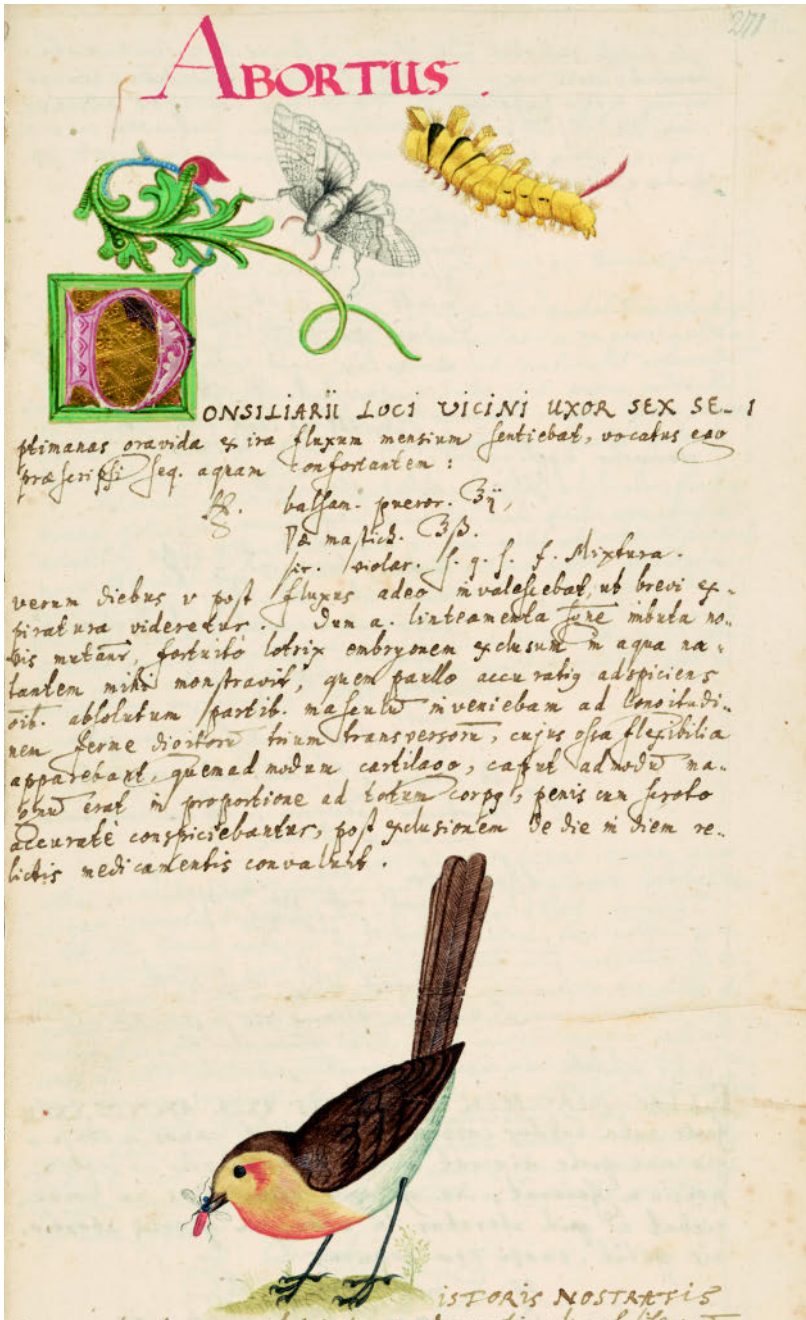 271
ABORTUS.
D
ONSILIARII LOCI VICINI UXOR SEX SE- 1
ptimanas gravida ex ira fluxum mensium sentiebat, vocatus ego
præscripsi seq. aquam confortantem:
℞. balsam. pueror. ℥ij,
mastich. ʒß.
sir. violar. s. q. f. Mixtura.
verum diebus v post fluxus adeo invalescebat, ut brevi ex-
piratura videretur. Dum a. linteamenta imbuta no-
vis mutant, fortuitò lotrix embryonem exclusum in aqua na-
tantem mihi monstravit, quem paullo accuratiꝰ adspiciens
oib. absolutum partib. masculū inveniebam ad longitudi-
nem ferme digitorū trium transversorū, cujus ossa flexibilia
apparebant, quemadmodum cartilago, caput admodū ma-
gnū erat in proportione ad totum corpꝰ, penis cum scroto
accuratè conspiciebantur, post exclusionem de die in diem re-
lictis medicamentis convaluit.
ISTORIS NOSTRATIS